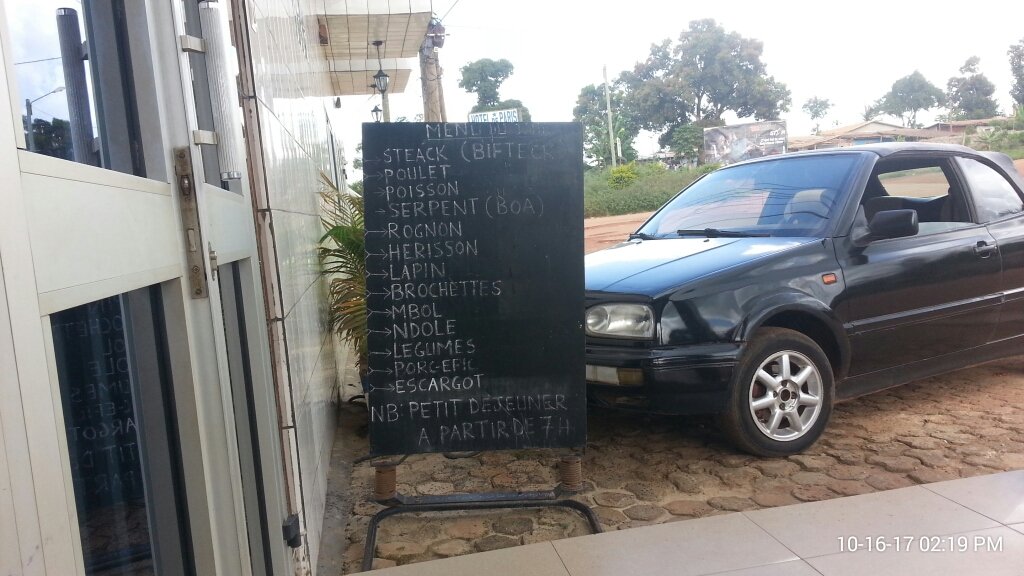 MENU
STEACK (BIFTECK
POULET
POISSON
SERPENT (BOA)
ROGNON
HERISSON
LAPIN
BROCHETTES
MBOL
NDOLE
LEGUMES
PORC-EPIC
ESCARGOT
NB' PETIT DEJEUNER
A PARTIR DE 7H
10-16-17 02:19 PM